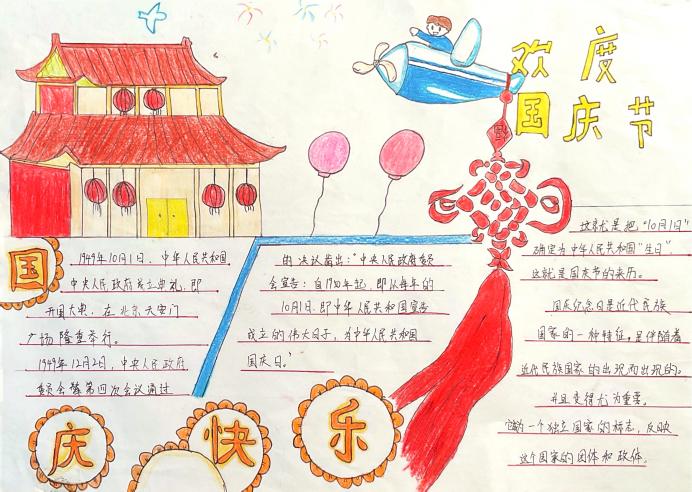 欢度
国庆节
国
庆
快
乐
1949年10月1日，中华人民共和国
中央人民政府成立典礼，即
开国大典，在北京天安门
广场隆重举行。
1949年12月2日，中央人民政府
委员会第四次会议通过
的决议指出："中央人民政府委员
会宣告：自1950年起，即以每年的
10月1日，即中华人民共和国宣告
成立的伟大日子，为中华人民共和国
国庆日。"
这就是把"10月1日"
确定为中华人民共和国"生日"，
这就是国庆节的来历。
国庆纪念日是近代民族
国家的一种特征，是伴随着
近代民族国家的出现而出现的。
并且变得尤为重要。
它的一个独立国家的标志，反映
这个国家的团体和政体。